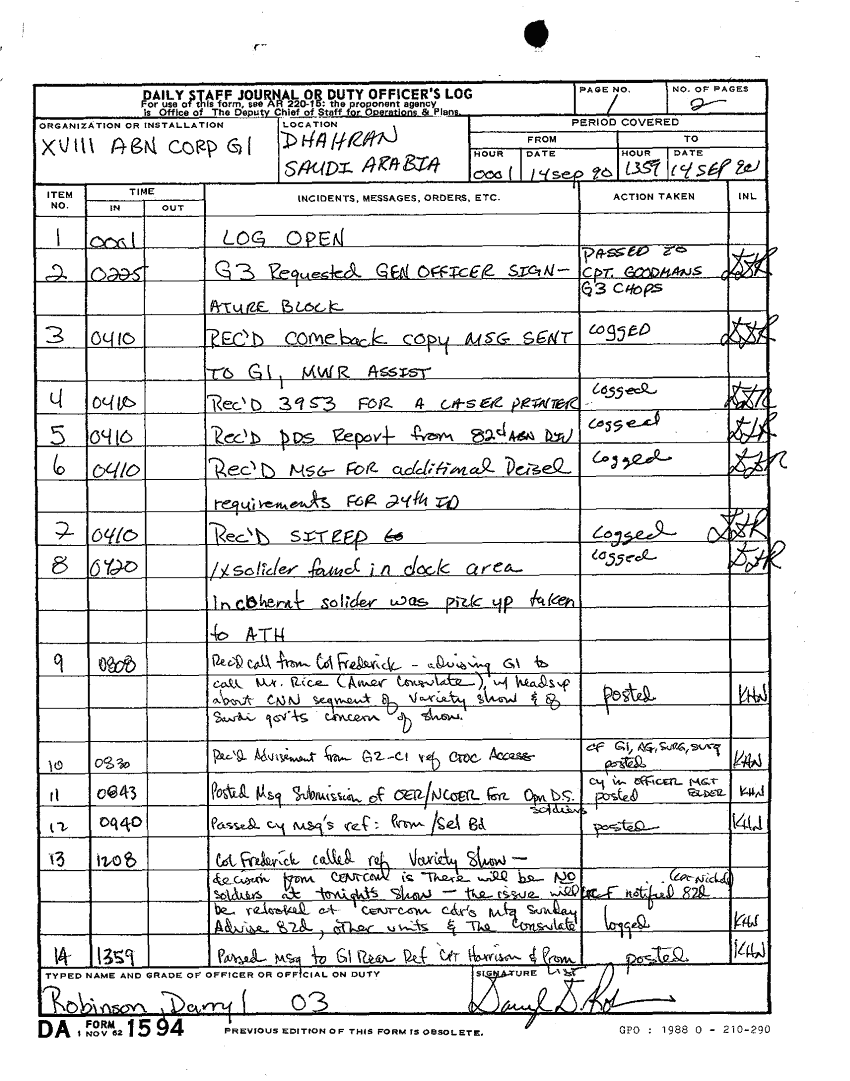 DAILY STAFF JOURNAL OR DUTY OFFICER'S LOG
For use of this form, see AR 220-15; the proponent agency
is Office of The Deputy Chief of Staff for Operations & Plans.
PAGE NO.
1
NO. OF PAGES
2
ORGANIZATION OR INSTALLATION
XVIII ABN CORP G1
LOCATION
DHAHRAN
SAUDI ARABIA
PERIOD COVERED
FROM
TO
HOUR
DATE
HOUR
DATE
0001
14 Sep 90
1359
14 SEP 90
ITEM NO.
TIME
IN
OUT
INCIDENTS, MESSAGES, ORDERS, ETC.
ACTION TAKEN
INL
1 0001 LOG OPEN
2 0225 G3 Requested GEN OFFICER SIGN-
ATURE BLOCK
PASSED TO
CPT. GOODMANS
G3 CHOPS
3 0410 REC'D comeback copy MSG SENT LOGGED
TO G1, MWR ASSIST
4 0410 Rec'D 3953 FOR A LASER PRINTER Logged
5 0410 Rec'D PDS Report from 82d ABN DIV Logged
6 0410 Rec'D MSG FOR additional Deisel Logged
requirements FOR 24th ID
7 0410 Rec'D SITREP Logged
8 0420 1x solider found in dock area Logged
Incohernt solider was pick up taken
to ATH
9 0808 Rec'd call from Col Frederick - advising G1 to
call Mr. Rice (Amer Consulate), w/ headsup
about CNN segment of Variety show & of posted KHW
Saudi gov'ts concern of show.
10 0830 Rec'd Advisement from G2-CI ref CTOC Access
CF G1, AG, SURG,
posted KHW
11 0843 Posted Msg Submission of OER/NCOER FOR Opn D.S.
soldiers
cy in OFFICER MGT
FOLDER
posted KHW
12 0940 Passed cy msg's ref: Prom/Sel Bd posted KHW
13 1208 Col Frederick called ref Variety Show -
decision from CENTCOM is There will be NO
soldiers at tonight's show - the issue will
be relooked at CENTCOM cdr's mtg Sunday
Advise 82d, other units & The Consulate
notified 82d
logged KHW
14 1359 Passed Msg to G1 Rear Ref CPT Harrison & Prom
LIST
posted KHW
TYPED NAME AND GRADE OF OFFICER OR OFFICIAL ON DUTY
Robinson, Darryl 03
SIGNATURE
DA FORM 1594
1 NOV 62
PREVIOUS EDITION OF THIS FORM IS OBSOLETE.
GPO : 1988 O - 210-290